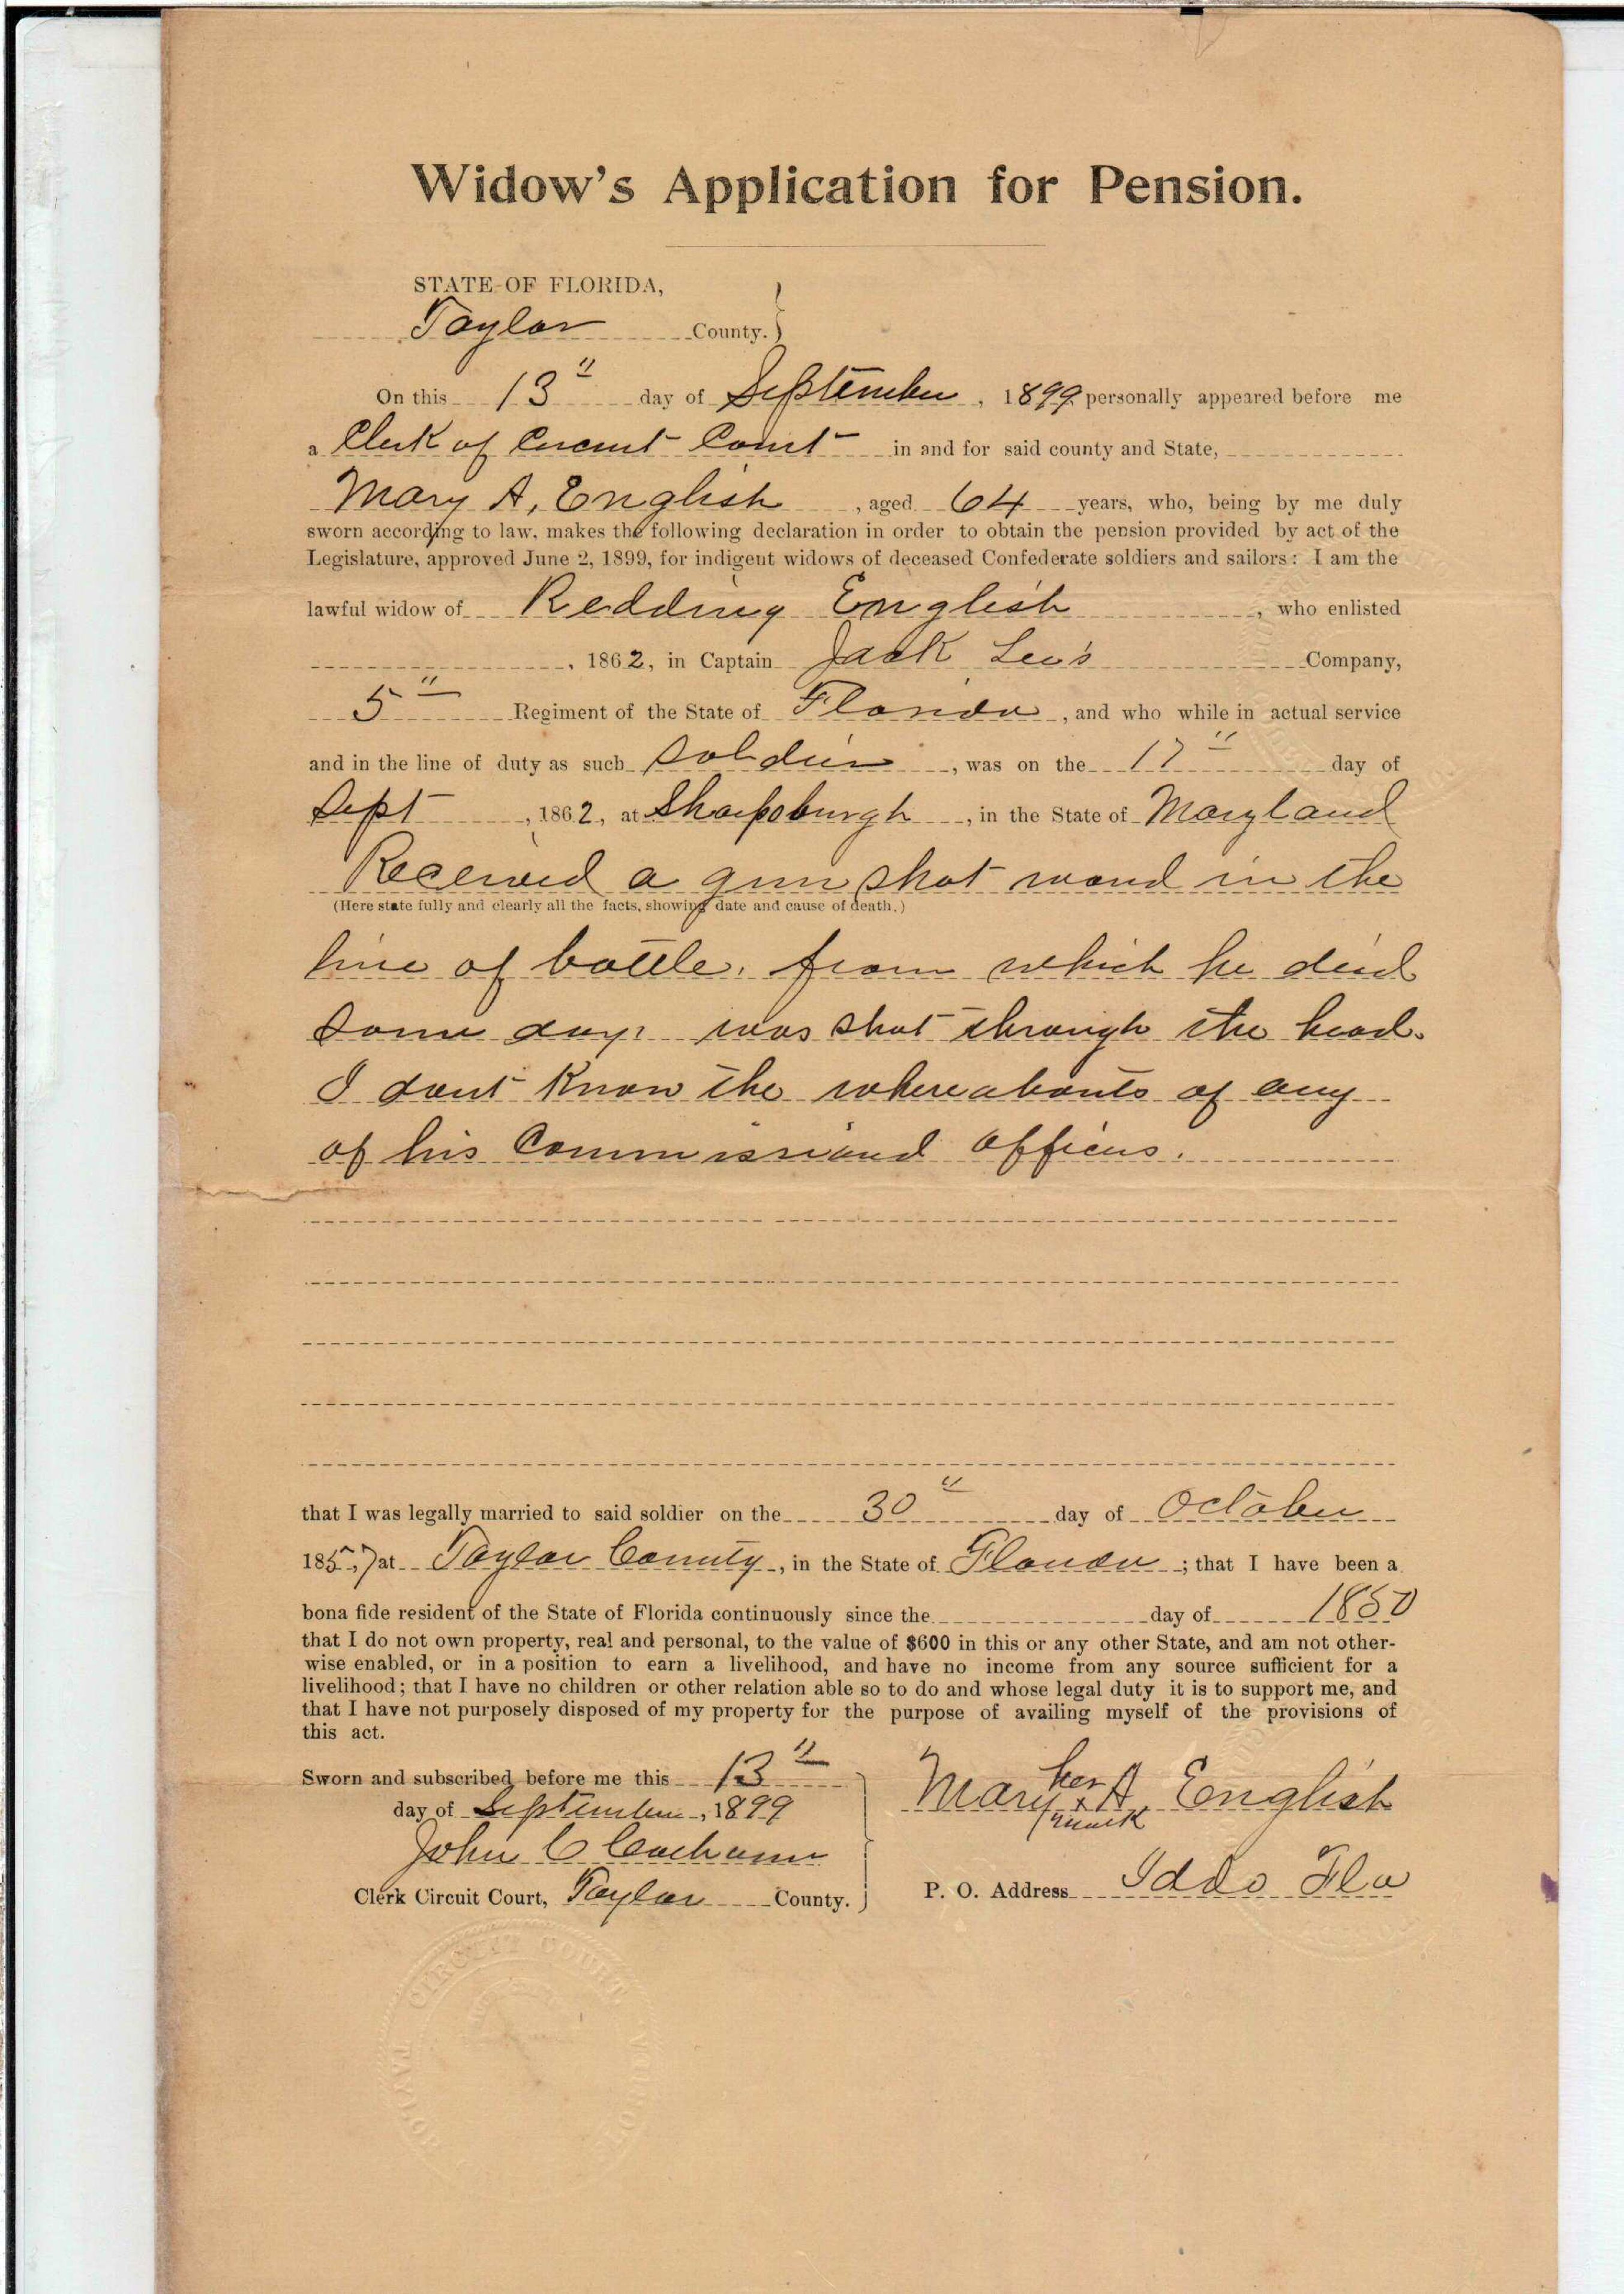 Widow's Application for Pension.
STATE OF FLORIDA,
Taylor County. }
On this 13" day of September, 1899 personally appeared before me
a Clerk of Circuit Court in and for said county and State,
Mary A, English, aged 64 years, who, being by me duly
sworn according to law, makes the following declaration in order to obtain the pension provided by act of the
Legislature, approved June 2, 1899, for indigent widows of deceased Confederate soldiers and sailors: I am the
lawful widow of Redding English, who enlisted
, 1862, in Captain Jack Leo's Company,
5" Regiment of the State of Florida, and who while in actual service
and in the line of duty as such soldier, was on the 17" day of
Sept, 1862, at Sharpsburgh, in the State of Maryland
Received a gun shot wound in the
(Here state fully and clearly all the facts, showing date and cause of death.)
line of battle, from which he died
same day. was shot through the head.
I dont Know the whereabouts of any
of his Commissiond officers.
that I was legally married to said soldier on the 30" day of October
1857, at Taylor County, in the State of Florida; that I have been a
bona fide resident of the State of Florida continuously since the day of 1850
that I do not own property, real and personal, to the value of $600 in this or any other State, and am not other-
wise enabled, or in a position to earn a livelihood, and have no income from any source sufficient for a
livelihood; that I have no children or other relation able so to do and whose legal duty it is to support me, and
that I have not purposely disposed of my property for the purpose of availing myself of the provisions of
this act.
Sworn and subscribed before me this 13"
day of September, 1899
John C
Clerk Circuit Court, Taylor County. }
her
Mary x A, English
mark
P. O. Address Iddo Fla
CIRCUIT COURT